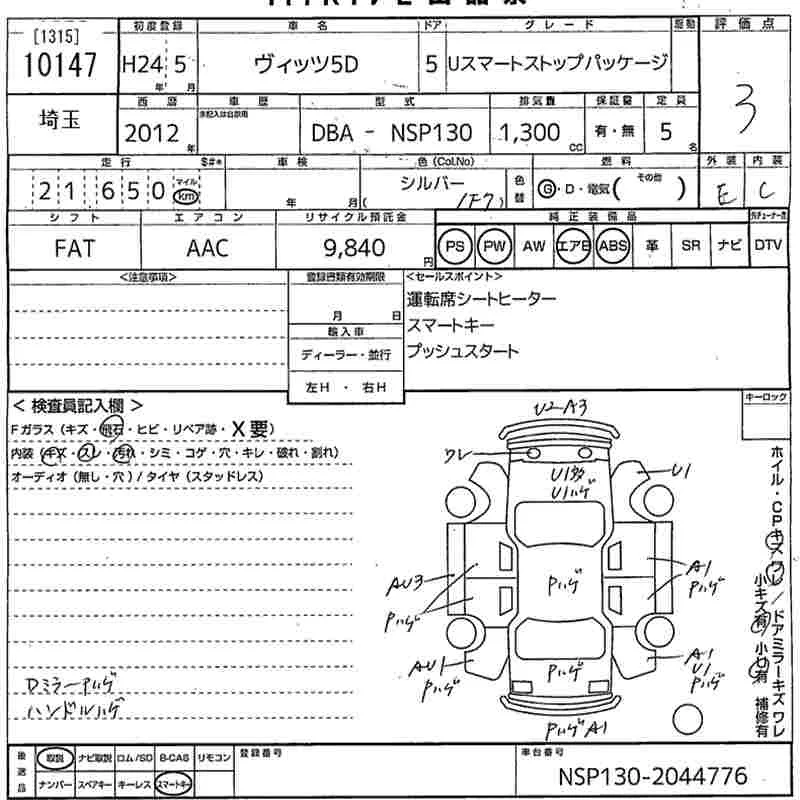 [1315]
10147
初度登録
車名
ドア
グレード
駆動
評価点
H24 5
年 月
ヴィッツ5D
5
Uスマートストップパッケージ
3
埼玉
西暦
車歴
型式
排気量
保証書
定員
2012 年
未記入は自家用
DBA - NSP130
1,300 cc
有・無
5 名
走行 $#*
車検
色(Col.No)
燃料
外装
内装
21 650 マイル km
年 月
シルバー
( 1F7 )
色替
G・D・電気( その他 )
E
C
シフト
エアコン
リサイクル預託金
純正装備品
FAT
AAC
9,840 円
PS PW AW エアB ABS 革 SR ナビ DTV
<注意事項>
登録書類有効期限
<セールスポイント>
月 日
運転席シートヒーター
輸入車
スマートキー
ディーラー・並行
プッシュスタート
左H・右H
< 検査員記入欄 >
キーロック
Fガラス(キズ・飛石・ヒビ・リペア跡・X要)
内装(キズ・スレ・汚れ・シミ・コゲ・穴・キレ・破れ・割れ)
オーディオ(無し・穴)/タイヤ(スタッドレス)
U2-A3
ワレ
U1多
U1ハゲ
U1
AU3
Pハゲ
Pハゲ
A1
Pハゲ
AU1
Pハゲ
Pハゲ
A1
U1
Pハゲ
Pハゲ A1
Dミラー Pハゲ
ハンドルハゲ
ホイル・CPキズワレ/ドアミラーキズワレ
小キズ有 小U有 補修有
後送品
取説 ナビ取説 ロム/SD B-CAS リモコン
ナンバー スペアキー キーレス スマートキー
登録番号
車台番号
NSP130-2044776